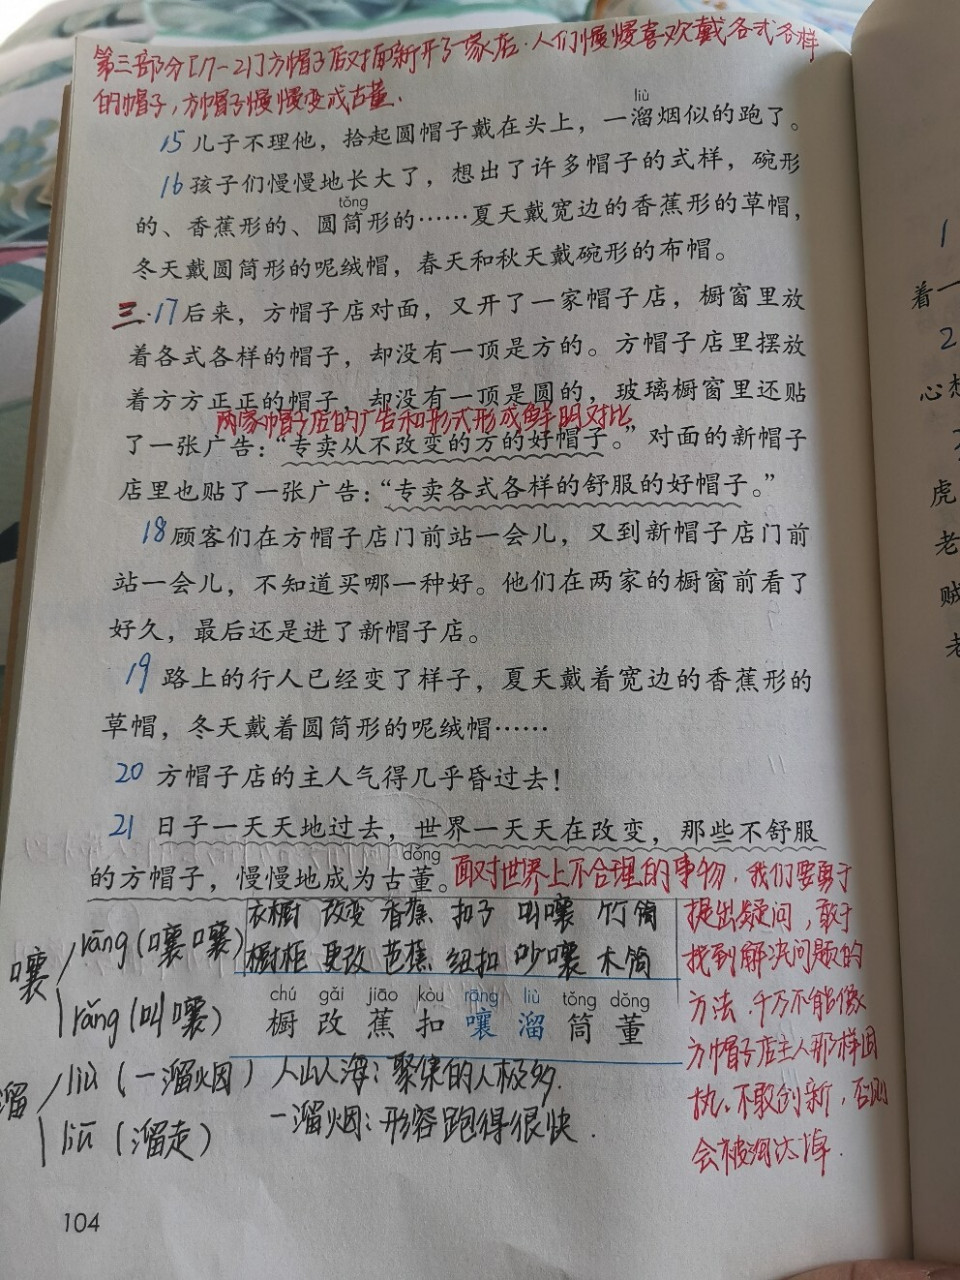 第三部分[17-21]方帽子店对面新开了一家店.人们慢慢喜欢戴各式各样
的帽子,方帽子慢慢变成古董.
liù
15 儿子不理他，拾起圆帽子戴在头上，一溜烟似的跑了。
16 孩子们慢慢地长大了，想出了许多帽子的式样，碗形
tǒng
的、香蕉形的、圆筒形的……夏天戴宽边的香蕉形的草帽，
冬天戴圆筒形的呢绒帽，春天和秋天戴碗形的布帽。
三.17 后来，方帽子店对面，又开了一家帽子店，橱窗里放
着各式各样的帽子，却没有一顶是方的。方帽子店里摆放
着方方正正的帽子，却没有一顶是圆的，玻璃橱窗里还贴
两家帽子店的广告和形式形成鲜明对比
了一张广告：“专卖从不改变的方的好帽子。”对面的新帽子
店里也贴了一张广告：“专卖各式各样的舒服的好帽子。”
18 顾客们在方帽子店门前站一会儿，又到新帽子店门前
站一会儿，不知道买哪一种好。他们在两家的橱窗前看了
好久，最后还是进了新帽子店。
19 路上的行人已经变了样子，夏天戴着宽边的香蕉形的
草帽，冬天戴着圆筒形的呢绒帽……
20 方帽子店的主人气得几乎昏过去！
21 日子一天天地过去，世界一天天在改变，那些不舒服
dǒng
的方帽子，慢慢地成为古董。
面对世界上不合理的事物.我们要勇于
提出疑问,敢于
找到解决问题的
方法.千万不能像
方帽子店主人那样固
执、不敢创新,否则
会被淘汰掉.
衣橱 改变 香蕉 扣子 叫嚷 竹筒
橱柜 更改 芭蕉 纽扣 吵嚷 木筒
chú gǎi jiāo kòu rǎng liù tǒng dǒng
橱 改 蕉 扣 嚷 溜 筒 董
嚷
rāng(嚷嚷)
rǎng(叫嚷)
溜
liù (一溜烟)
liū (溜走)
人山人海:聚集的人极多.
一溜烟:形容跑得很快.
104
1
着一
2
心想
虎
老
贼
老